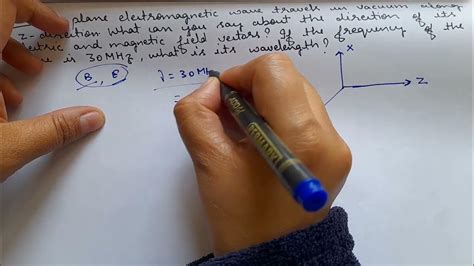 plane eletromagnetic wave travels in vacuum along
z-direction what can you say about the direction of its
electric and magnetic field vectors? If the frequency of the
wave is 30MHz, what is its wavelength?
B, E
ν = 30MHz
=
X
Z